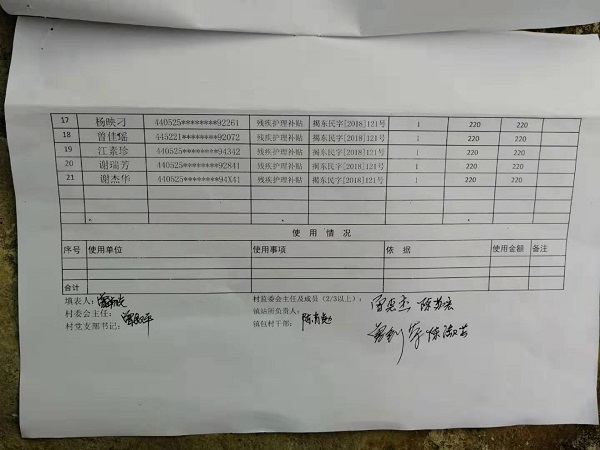 17 杨映刁 440525********92261 残疾护理补贴 揭东民字[2018]121号 1 220 220
18 曾佳瑶 445221********92072 残疾护理补贴 揭东民字[2018]121号 1 220 220
19 江素珍 440525********94342 残疾护理补贴 揭东民字[2018]121号 1 220 220
20 谢瑞芳 440525********92841 残疾护理补贴 揭东民字[2018]121号 1 220 220
21 谢杰华 440525********94X41 残疾护理补贴 揭东民字[2018]121号 1 220 220
使 用 情 况
序号 使用单位 使用事项 依 据 使用金额 备注
合计
填表人: 村监委会主任及成员(2/3以上):
村委会主任: 镇站所负责人:
村党支部书记: 镇包村干部: